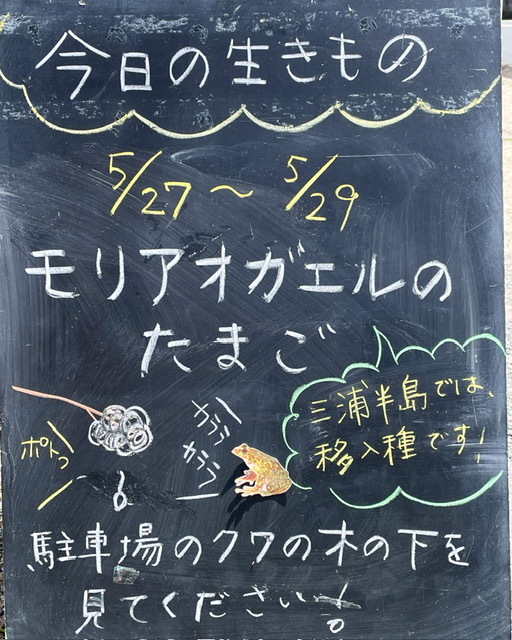 今日の生きもの
5/27 〜 5/29
モリアオガエルの
たまご
三浦半島では、
移入種です!
カララ
カララ
ポトっ
駐車場のクワの木の下を
見てください!